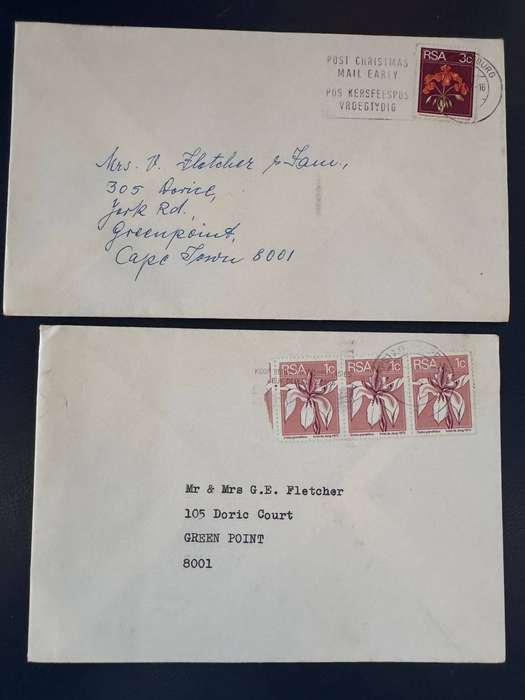 POST CHRISTMAS
MAIL EARLY
POS KERSFEESPOS
VROEGTYDIG
RSA 3c
BURG
16
Mrs. V. Fletcher & Fam.,
305 Dorice,
York Rd.,
Greenpoint,
Cape Town 8001
RSA 1c
RSA 1c
RSA 1c
Mr & Mrs G.E. Fletcher
105 Doric Court
GREEN POINT
8001